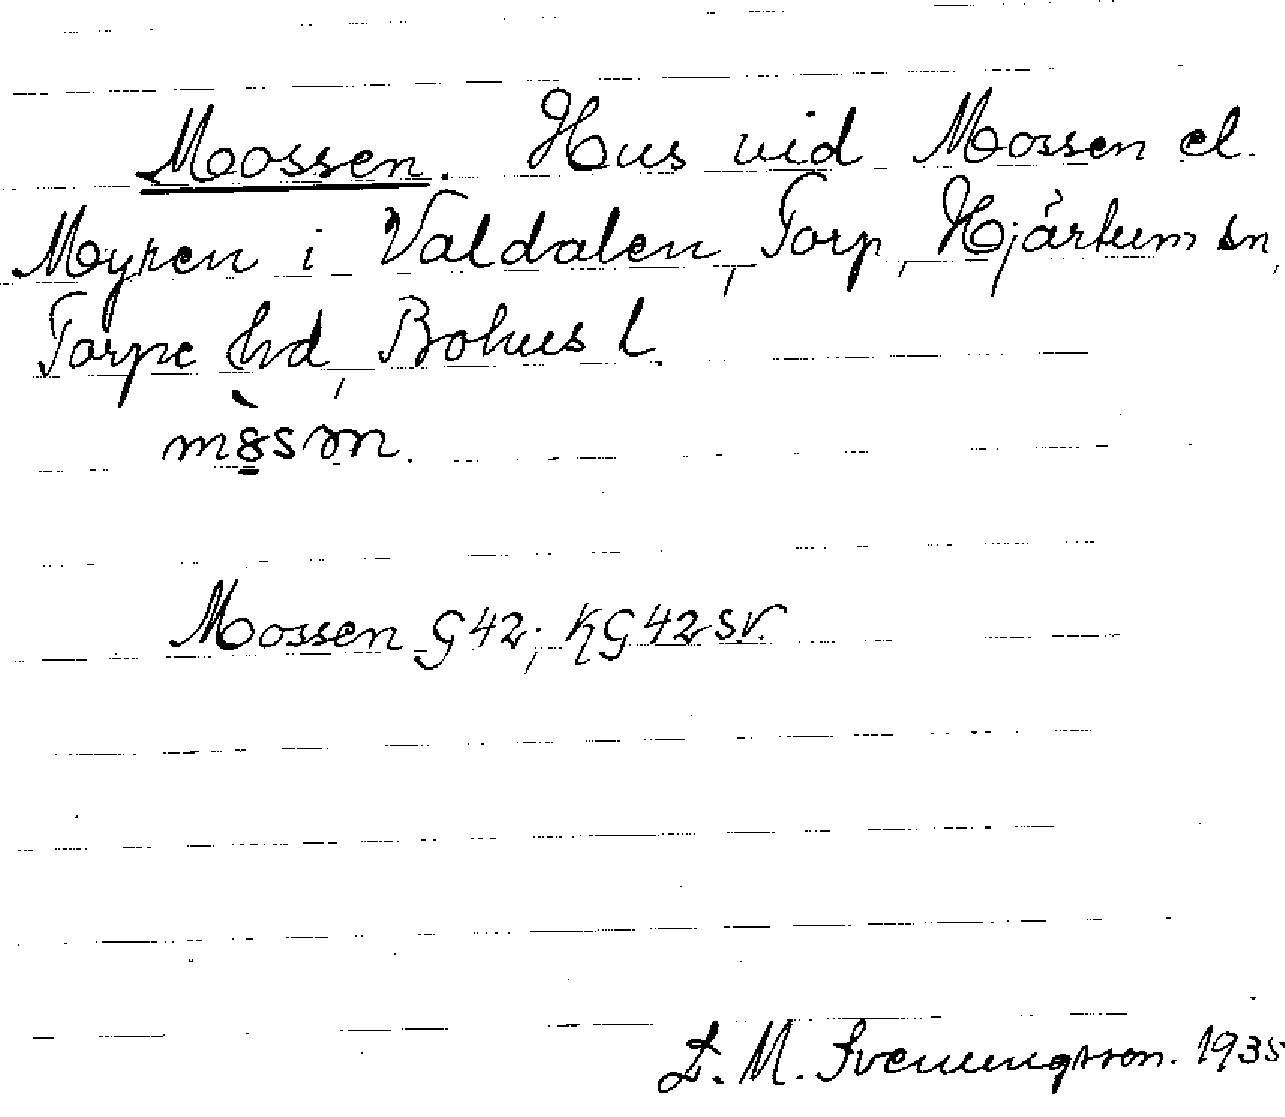 Mossen. Hus vid Mossen el.
Myren i Valdalen, Torp, Hjärtum sn,
Torpe hd, Bohus l.
Mossen G42; KG42sv.
L. M. Svenungsson. 1935